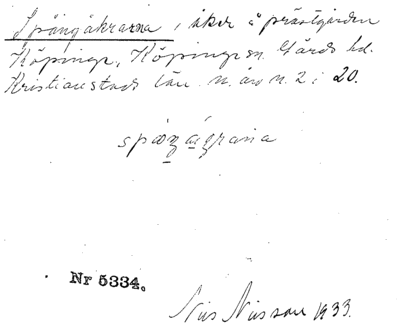 Spångåkrarna, åker å prästgården
Köpinge, Köpinge sn. Gärds hd.
Kristianstads län. n. av n. 2: 20.
spæŋågrana
Nr 5334.
Nils Nilsson 1933.